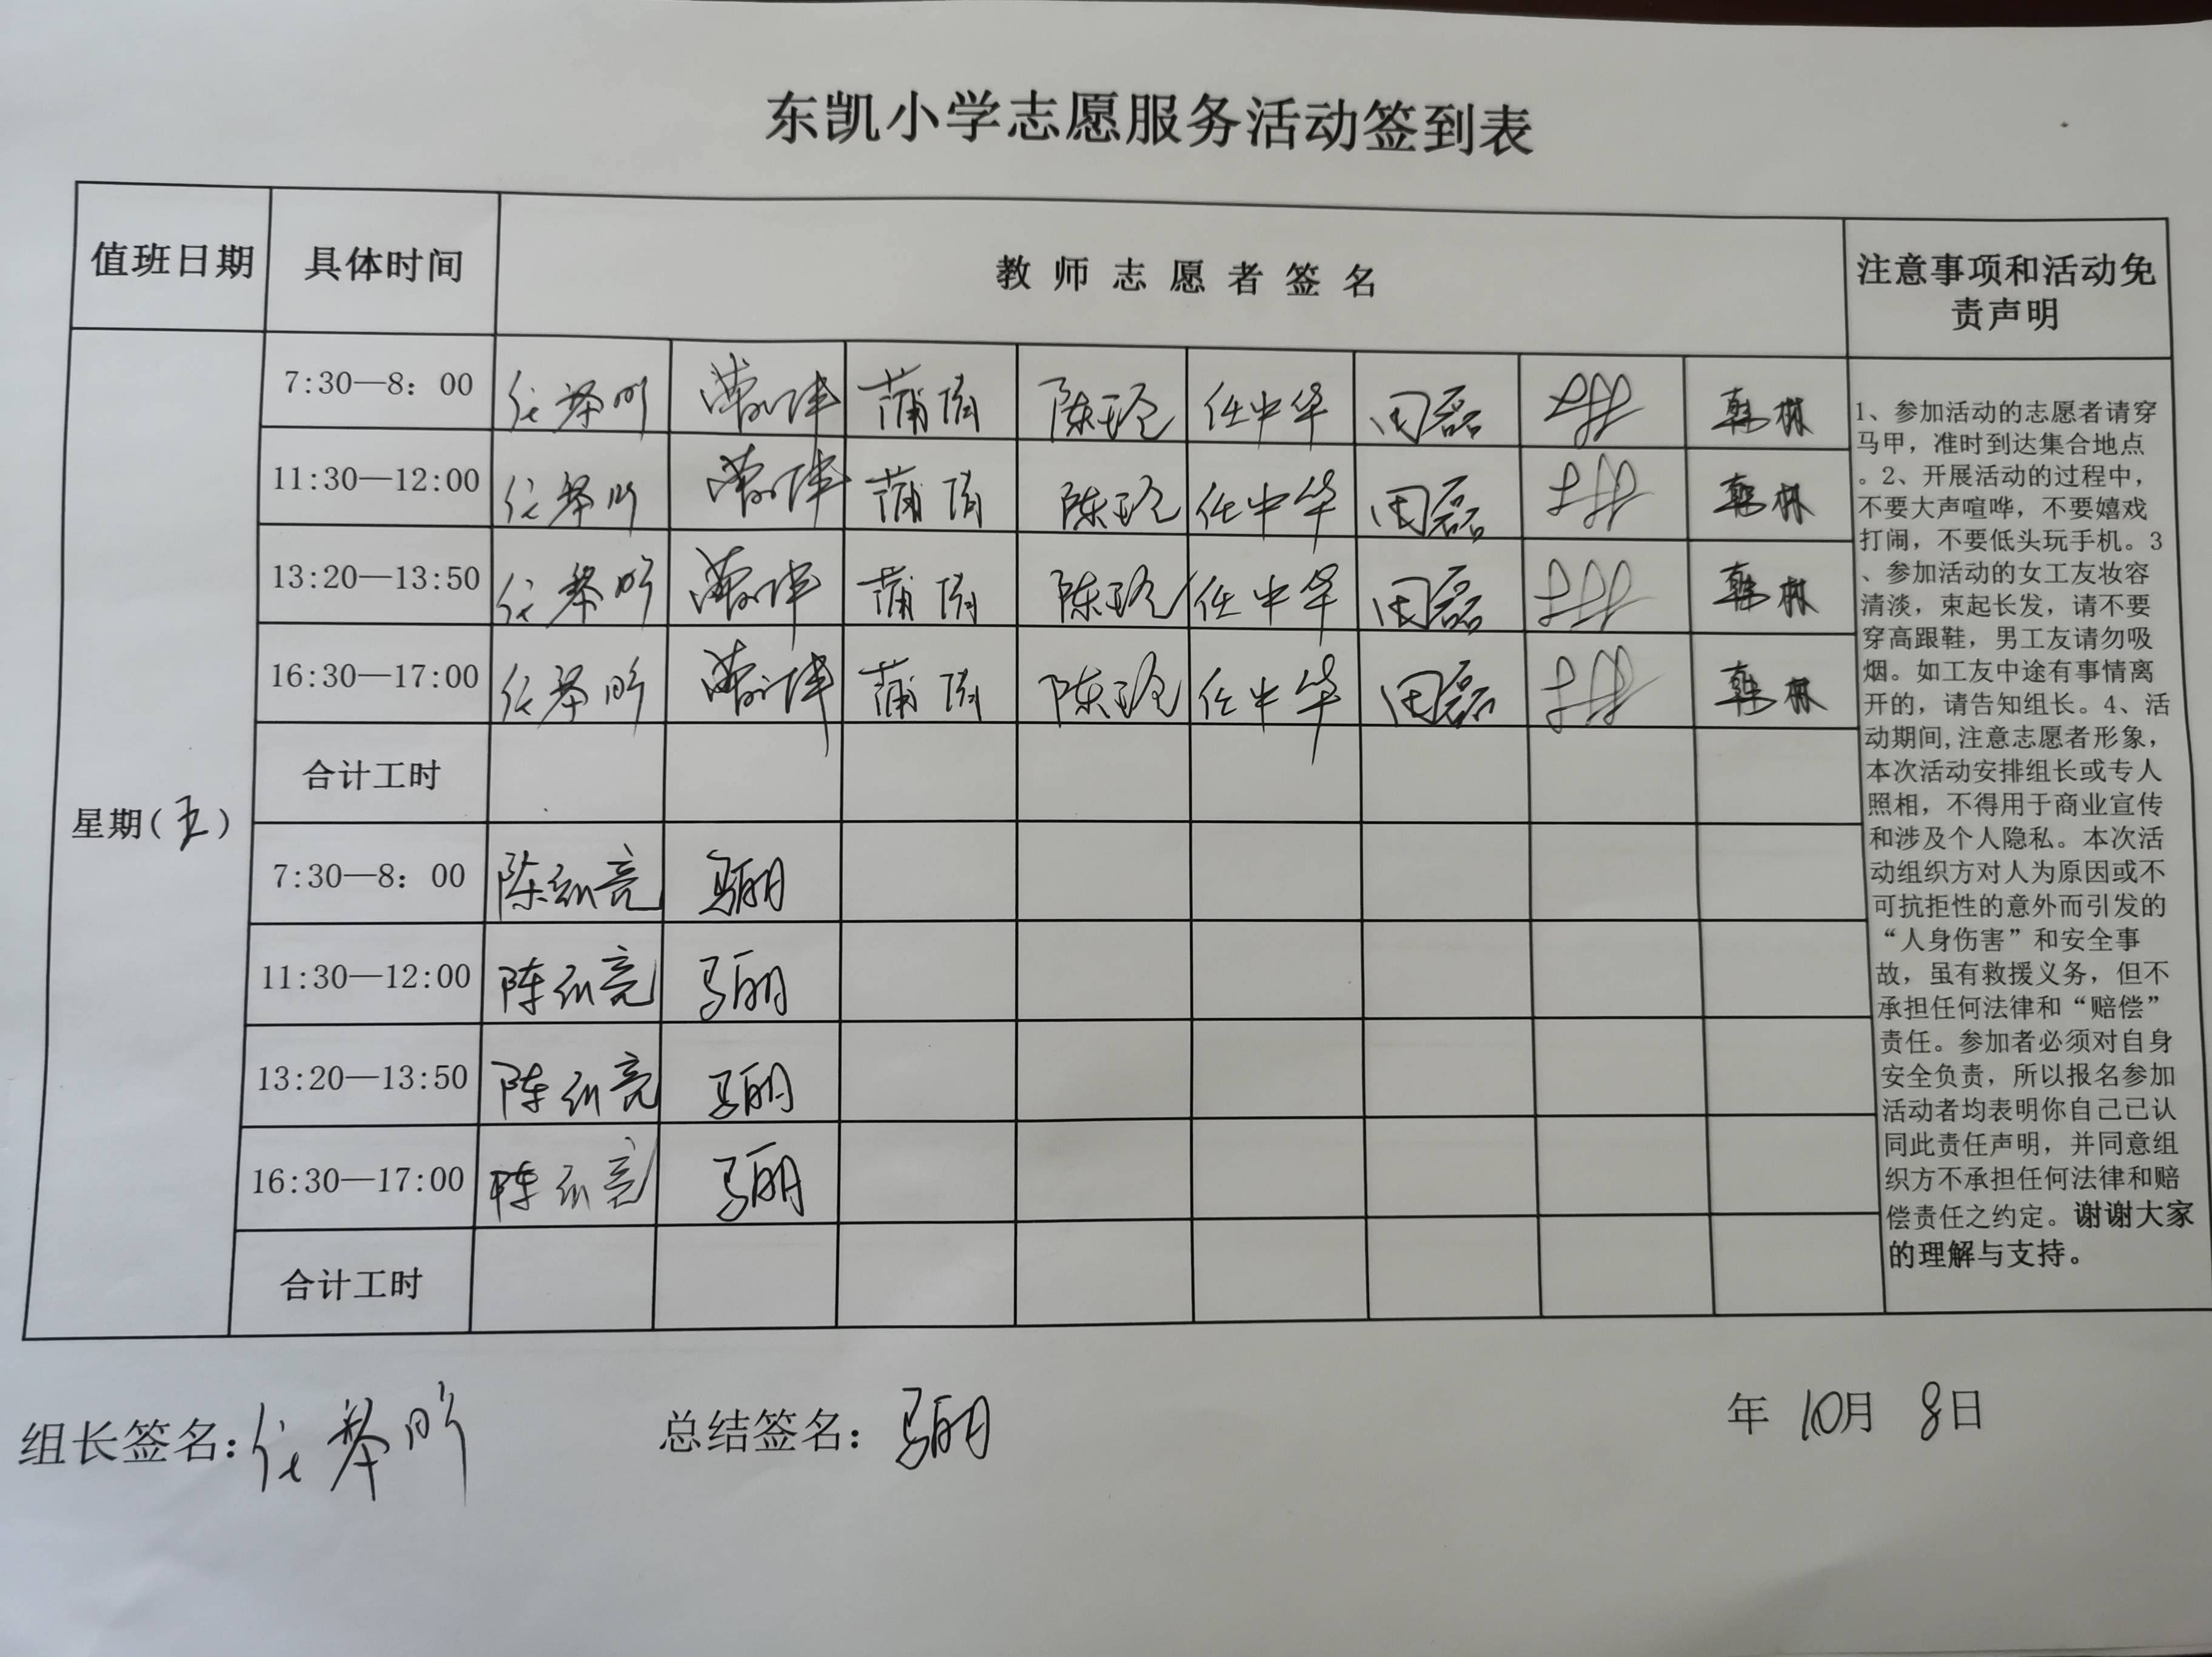 东凯小学志愿服务活动签到表
值班日期 具体时间 教师志愿者签名 注意事项和活动免
责声明
7:30—8：00 陈玲 任中华 周磊 韩林
11:30—12:00 陈玲 任中华 周磊 韩林
13:20—13:50 陈玲 任中华 周磊 韩林
16:30—17:00 陈玲 任中华 周磊 韩林
合计工时
星期(五)
7:30—8：00
11:30—12:00
13:20—13:50
16:30—17:00
合计工时
1、参加活动的志愿者请穿
马甲，准时到达集合地点
。2、开展活动的过程中，
不要大声喧哗，不要嬉戏
打闹，不要低头玩手机。3
、参加活动的女工友妆容
清淡，束起长发，请不要
穿高跟鞋，男工友请勿吸
烟。如工友中途有事情离
开的，请告知组长。4、活
动期间,注意志愿者形象，
本次活动安排组长或专人
照相，不得用于商业宣传
和涉及个人隐私。本次活
动组织方对人为原因或不
可抗拒性的意外而引发的
“人身伤害”和安全事
故，虽有救援义务，但不
承担任何法律和“赔偿”
责任。参加者必须对自身
安全负责，所以报名参加
活动者均表明你自己已认
同此责任声明，并同意组
织方不承担任何法律和赔
偿责任之约定。谢谢大家
的理解与支持。
组长签名： 总结签名： 年 10月 8日